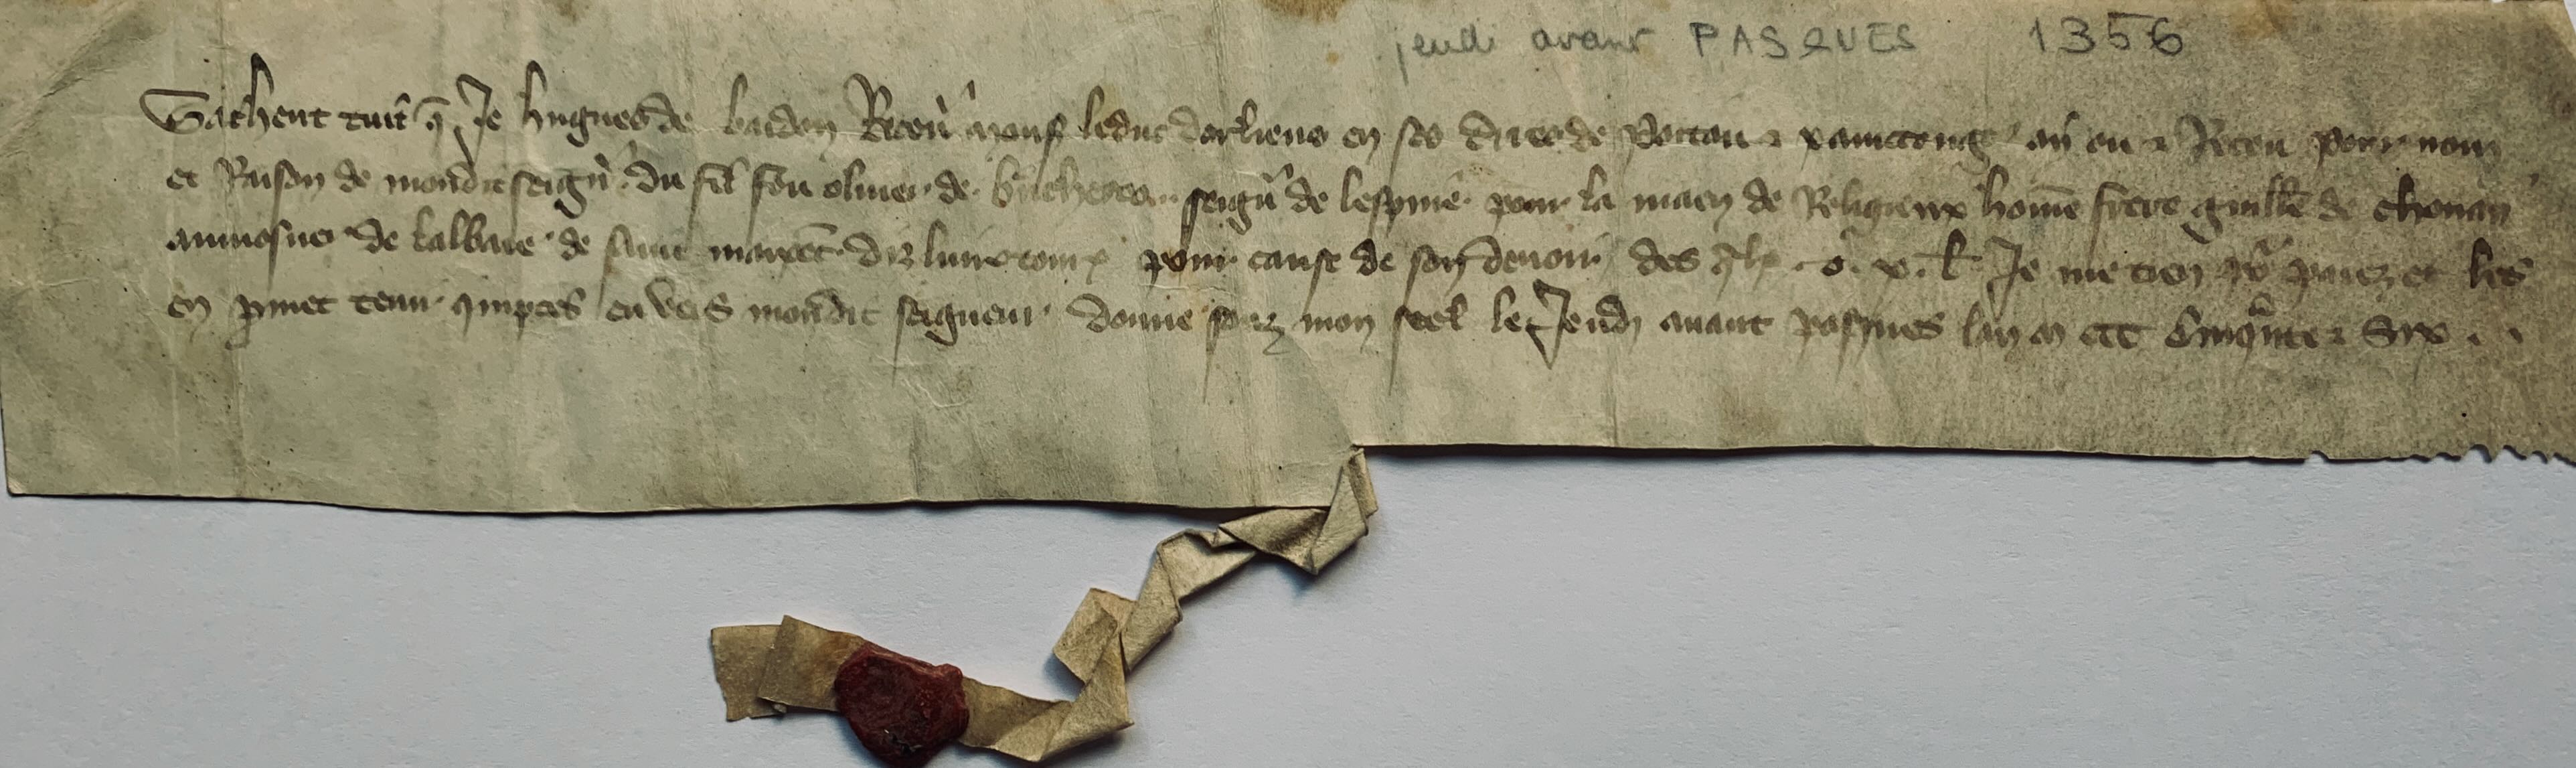 jeudi avant PASQUES 1356
Sachent tuit q̄ Je hugues de baidon Receū mons leduc dorliens en ses de Poitou & xainctonge ay eu & Receu pour nom
et Raison de mondit seigū du fil feu olivier de seigū de lespine pour la main de Religieux home frere guille de chonay
aumosnier de labbaie de saint maixēt diz livres pour cause de son devoir des . x . l Je me tien paiez et les
en pmet tenir quiptes envers mondit seigneur donne soubz mon seel le Jeudi avant pasques lan m ccc cinqnte & Six . .